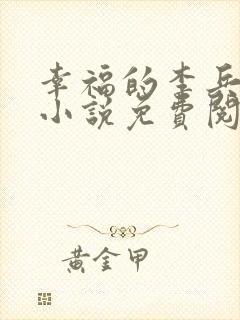 幸福的李兵
小说免費閱
黃金甲